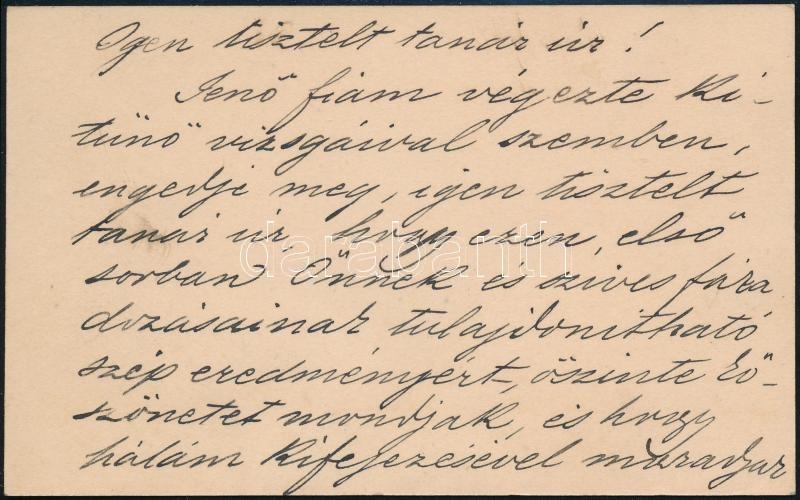 Igen tisztelt tanár úr!
Jenő fiam végezte ki-
tűnő vizsgáival szemben,
engedje meg, igen tisztelt
tanár úr, hogy ezen, első
sorban Önnek és szíves fára
dozásainak tulajdonítható
szép eredményért, őszinte kö-
szönetet mondjak, és hogy
hálám kifejezésével maradjak
darabanth